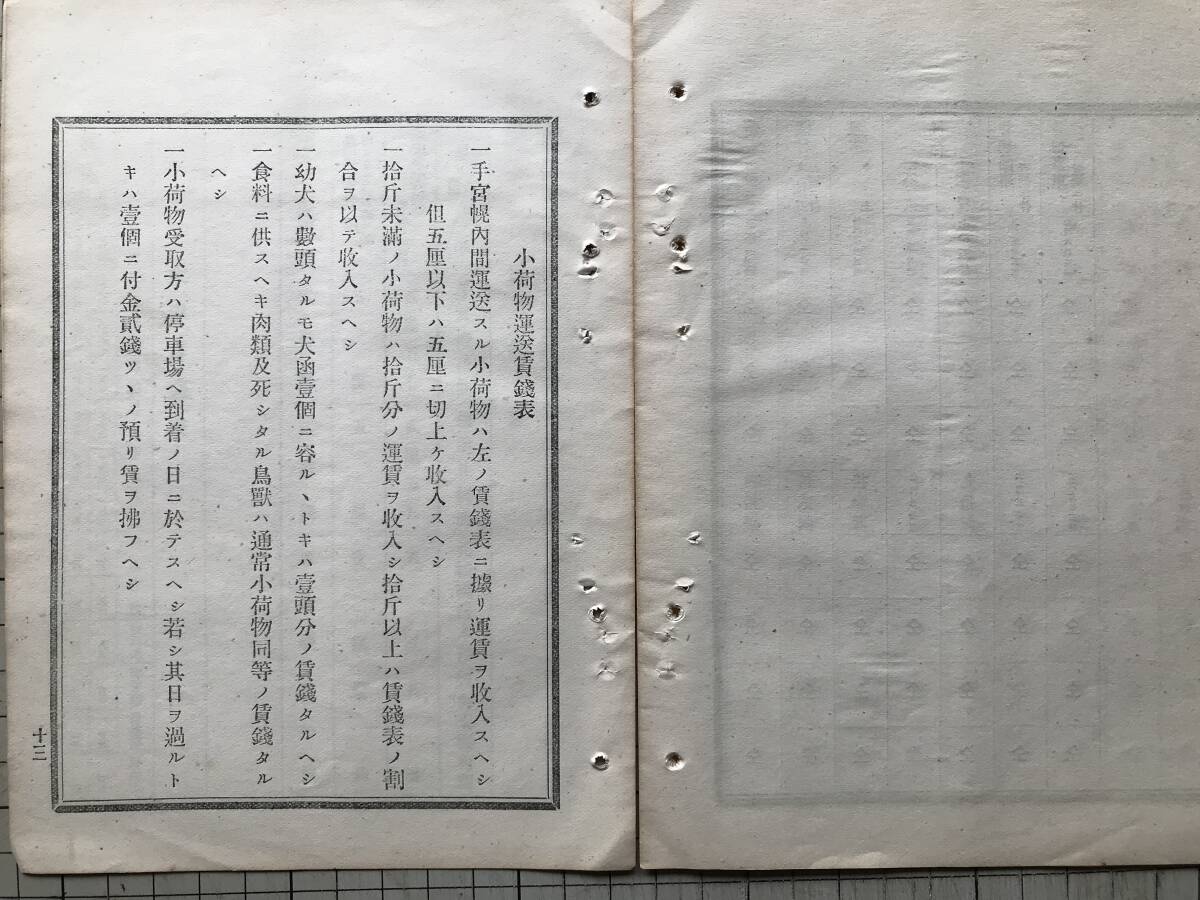 小荷物運送賃錢表
一手宮幌內間運送スル小荷物ハ左ノ賃錢表ニ據リ運賃ヲ收入スヘシ
但五厘以下ハ五厘ニ切上ケ收入スヘシ
一拾斤未滿ノ小荷物ハ拾斤分ノ運賃ヲ收入シ拾斤以上ハ賃錢表ノ割
合ヲ以テ收入スヘシ
一幼犬ハ數頭タルモ犬函壹個ニ容ルヽトキハ壹頭分ノ賃錢タルヘシ
一食料ニ供スヘキ肉類及死シタル鳥獸ハ通常小荷物同等ノ賃錢タル
ヘシ
一小荷物受取方ハ停車場ヘ到着ノ日ニ於テスヘシ若シ其日ヲ過ルト
キハ壹個ニ付金貳錢ツヽノ預リ賃ヲ拂フヘシ
十三